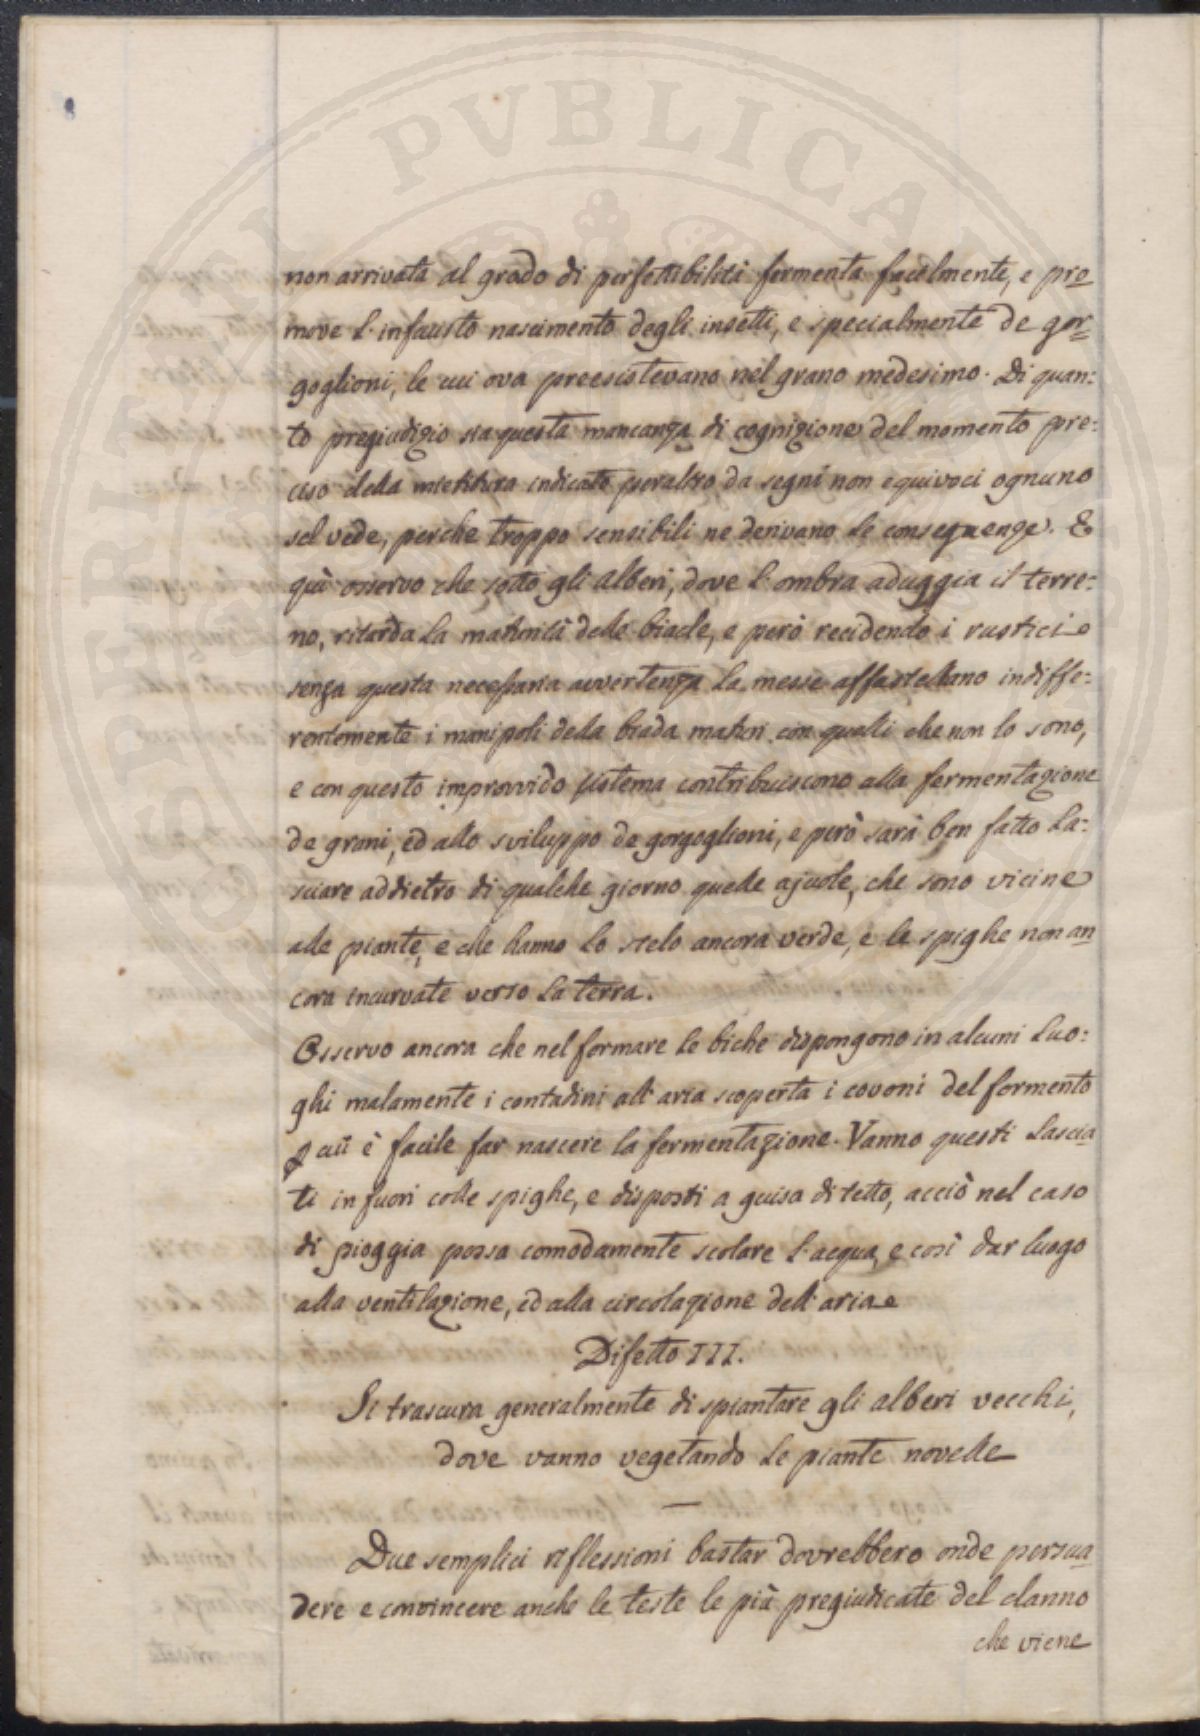 non arrivata al grado di perfettibilità fermenta facilmente, e pro
move l'infausto nascimento degli insetti, e specialmente de gor
goglioni, le cui ova preesistevano nel grano medesimo. Di quan:
to pregiudizio sia questa mancanza di cognizione del momento pre:
ciso della mietitura indicato peraltro da segni non equivoci ognuno
sel vede, perche troppo sensibili ne derivano le conseguenze. E
quì osservo che sotto gli alberi, dove l'ombra aduggia il terre:
no, ritarda la maturità delle biade, e però recidendo i rustici
senza questa necessaria avvertenza la messe affastellano indiffe:
rentemente i manipoli della biada maturi con quelli che non lo sono,
e con questo improvvido sistema contribuiscono alla fermentazione
de grani, ed allo sviluppo de gorgoglioni, e però sarà ben fatto la:
sciare addietro di qualche giorno quelle ajuole, che sono vicine
alle piante, e che hanno lo stelo ancora verde, e le spighe non an
cora incurvate verso la terra.
Osservo ancora che nel formare le biche dispongono in alcuni luo:
ghi malamente i contadini all'aria scoperta i covoni del formento
cui è facile far nascere la fermentazione. Vanno questi lascia
ti in fuori colle spighe, e disposti a guisa di tetto, acciò nel caso
di pioggia possa comodamente scolare l'acqua, e così dar luogo
alla ventilazione, ed alla circolazione dell'aria
Difetto III.
Si trascura generalmente di spiantare gli alberi vecchi,
dove vanno vegetando le piante novelle
Due semplici riflessioni bastar dovrebbero onde persua
dere e convincere anche le teste le più pregiudicate del danno
che viene
SPERITATI PVBLICAE